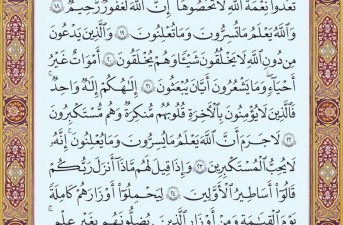 تَعُدُّوا۟ نِعْمَةَ ٱللَّهِ لَا تُحْصُوهَآ إِنَّ ٱللَّهَ لَغَفُورٌ رَّحِيمٌ ١٨
وَٱللَّهُ يَعْلَمُ مَا تُسِرُّونَ وَمَا تُعْلِنُونَ ١٩ وَٱلَّذِينَ يَدْعُونَ
مِن دُونِ ٱللَّهِ لَا يَخْلُقُونَ شَيْـًٔا وَهُمْ يُخْلَقُونَ ٢٠ أَمْوَٰتٌ غَيْرُ
أَحْيَآءٍ وَمَا يَشْعُرُونَ أَيَّانَ يُبْعَثُونَ ٢١ إِلَـٰهُكُمْ إِلَـٰهٌ وَٰحِدٌ
فَٱلَّذِينَ لَا يُؤْمِنُونَ بِٱلْـَٔاخِرَةِ قُلُوبُهُم مُّنكِرَةٌ وَهُم مُّسْتَكْبِرُونَ
٢٢ لَا جَرَمَ أَنَّ ٱللَّهَ يَعْلَمُ مَا يُسِرُّونَ وَمَا يُعْلِنُونَ إِنَّهُۥ
لَا يُحِبُّ ٱلْمُسْتَكْبِرِينَ ٢٣ وَإِذَا قِيلَ لَهُم مَّاذَآ أَنزَلَ رَبُّكُمْ
قَالُوٓا۟ أَسَـٰطِيرُ ٱلْأَوَّلِينَ ٢٤ لِيَحْمِلُوٓا۟ أَوْزَارَهُمْ كَامِلَةً
يَوْمَ ٱلْقِيَـٰمَةِ وَمِنْ أَوْزَارِ ٱلَّذِينَ يُضِلُّونَهُم بِغَيْرِ عِلْمٍ